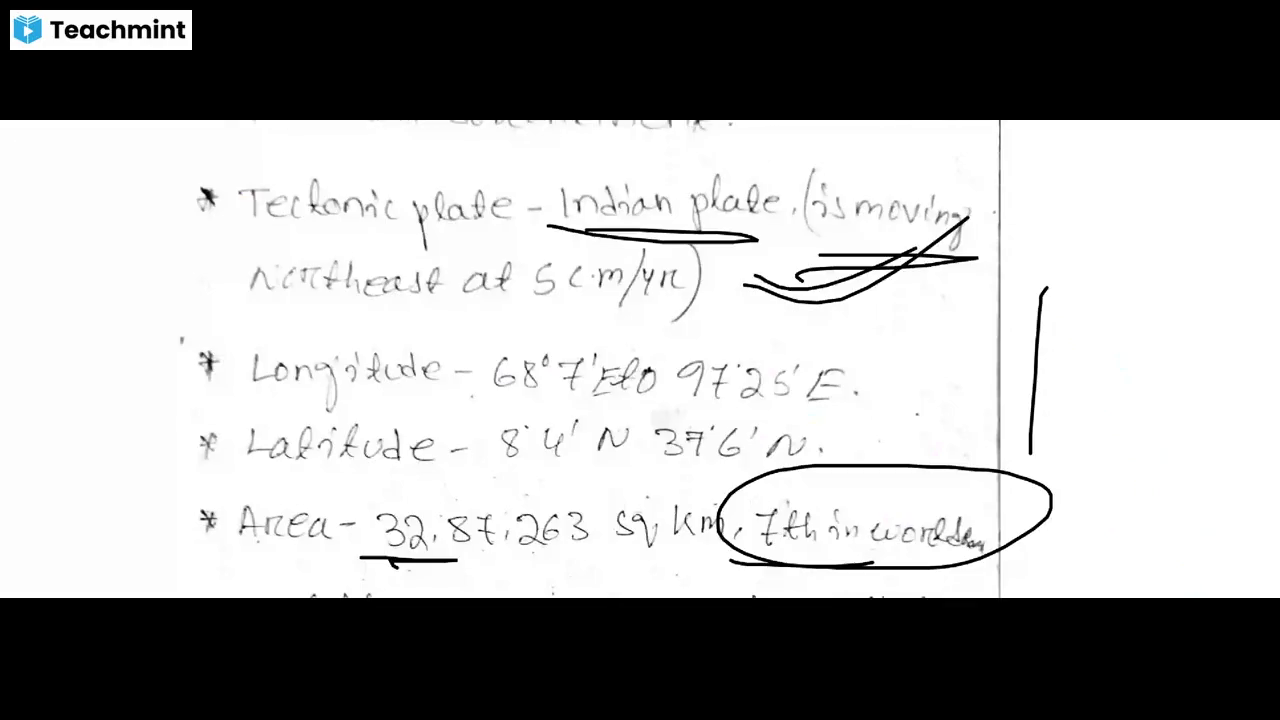 Teachmint
* Tectonic plate - Indian plate. (is moving
Northeast at 5 c.m/yr)
* Longitude - 68°7'E to 97°25'E.
* Latitude - 8°4' N 37°6' N.
* Area - 32,87,263 sq km, 7th in world